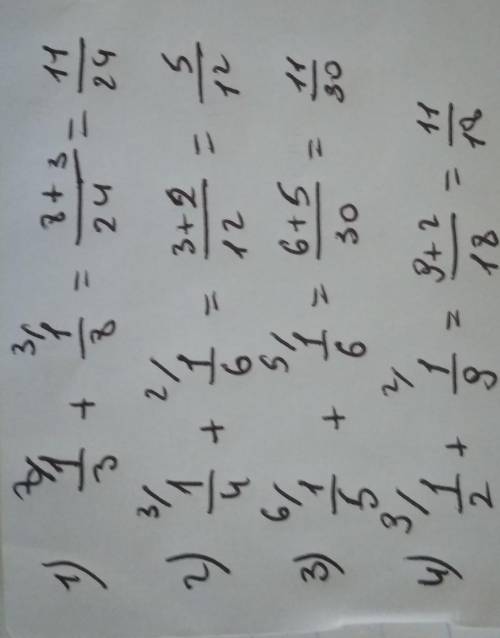 1) 8/ 1/3 + 3/ 1/8 = (8+3)/24 = 11/24
2) 3/ 1/4 + 2/ 1/6 = (3+2)/12 = 5/12
3) 6/ 1/5 + 5/ 1/6 = (6+5)/30 = 11/30
4) 9/ 1/2 + 2/ 1/9 = (9+2)/18 = 11/18